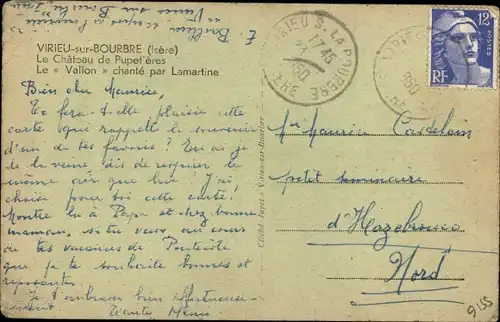 VIRIEU-sur-BOURBRE (Isère)
Le Château de Pupetières
Le « Vallon » chanté par Lamartine
Bien cher Maurice,
Te fera-t-elle plaisir cette
carte qui rappelle le souvenir
d'un de tes favoris ? En ai je
de la veine, dis de respirer le
même air que lui ! J'ai
choisi pour toi cette carte !
Montre la à Papa et chez bonne
maman, si tu veux au cours
de tes vacances de Pentecôte
que je te souhaite bonnes et
reposantes.
Je t'embrasse bien affectueuse-
ment
Cliché Jayet - Virieu-sur-Bourbre
VIRIEU S. LA BOURBRE
17 45
ISERE
12
POSTES
RF
Mr Maurice Castelain
petit séminaire
d'Hazebrouck
Nord
9155